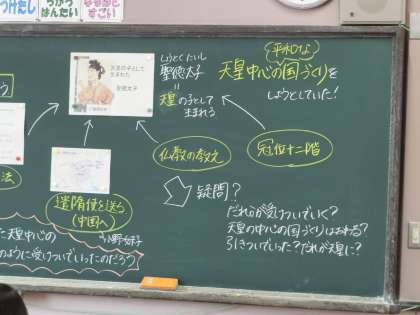 つけたし
はんたい
すごい
天皇の子として
生まれた
聖徳太子
しょうとくたいし
聖徳太子
=
天皇の子として
生まれる
平和な
天皇中心の国づくりを
しようとしていた!
仏教の教え
冠位十二階
法
遣隋使を送る
(中国へ)
小野妹子
疑問?
だれが受けついでいく?
天皇の中心の国づくりはおわる?
引きついでいった?だれが天皇に?
た天皇中心の
のように受けついでいったのだろう